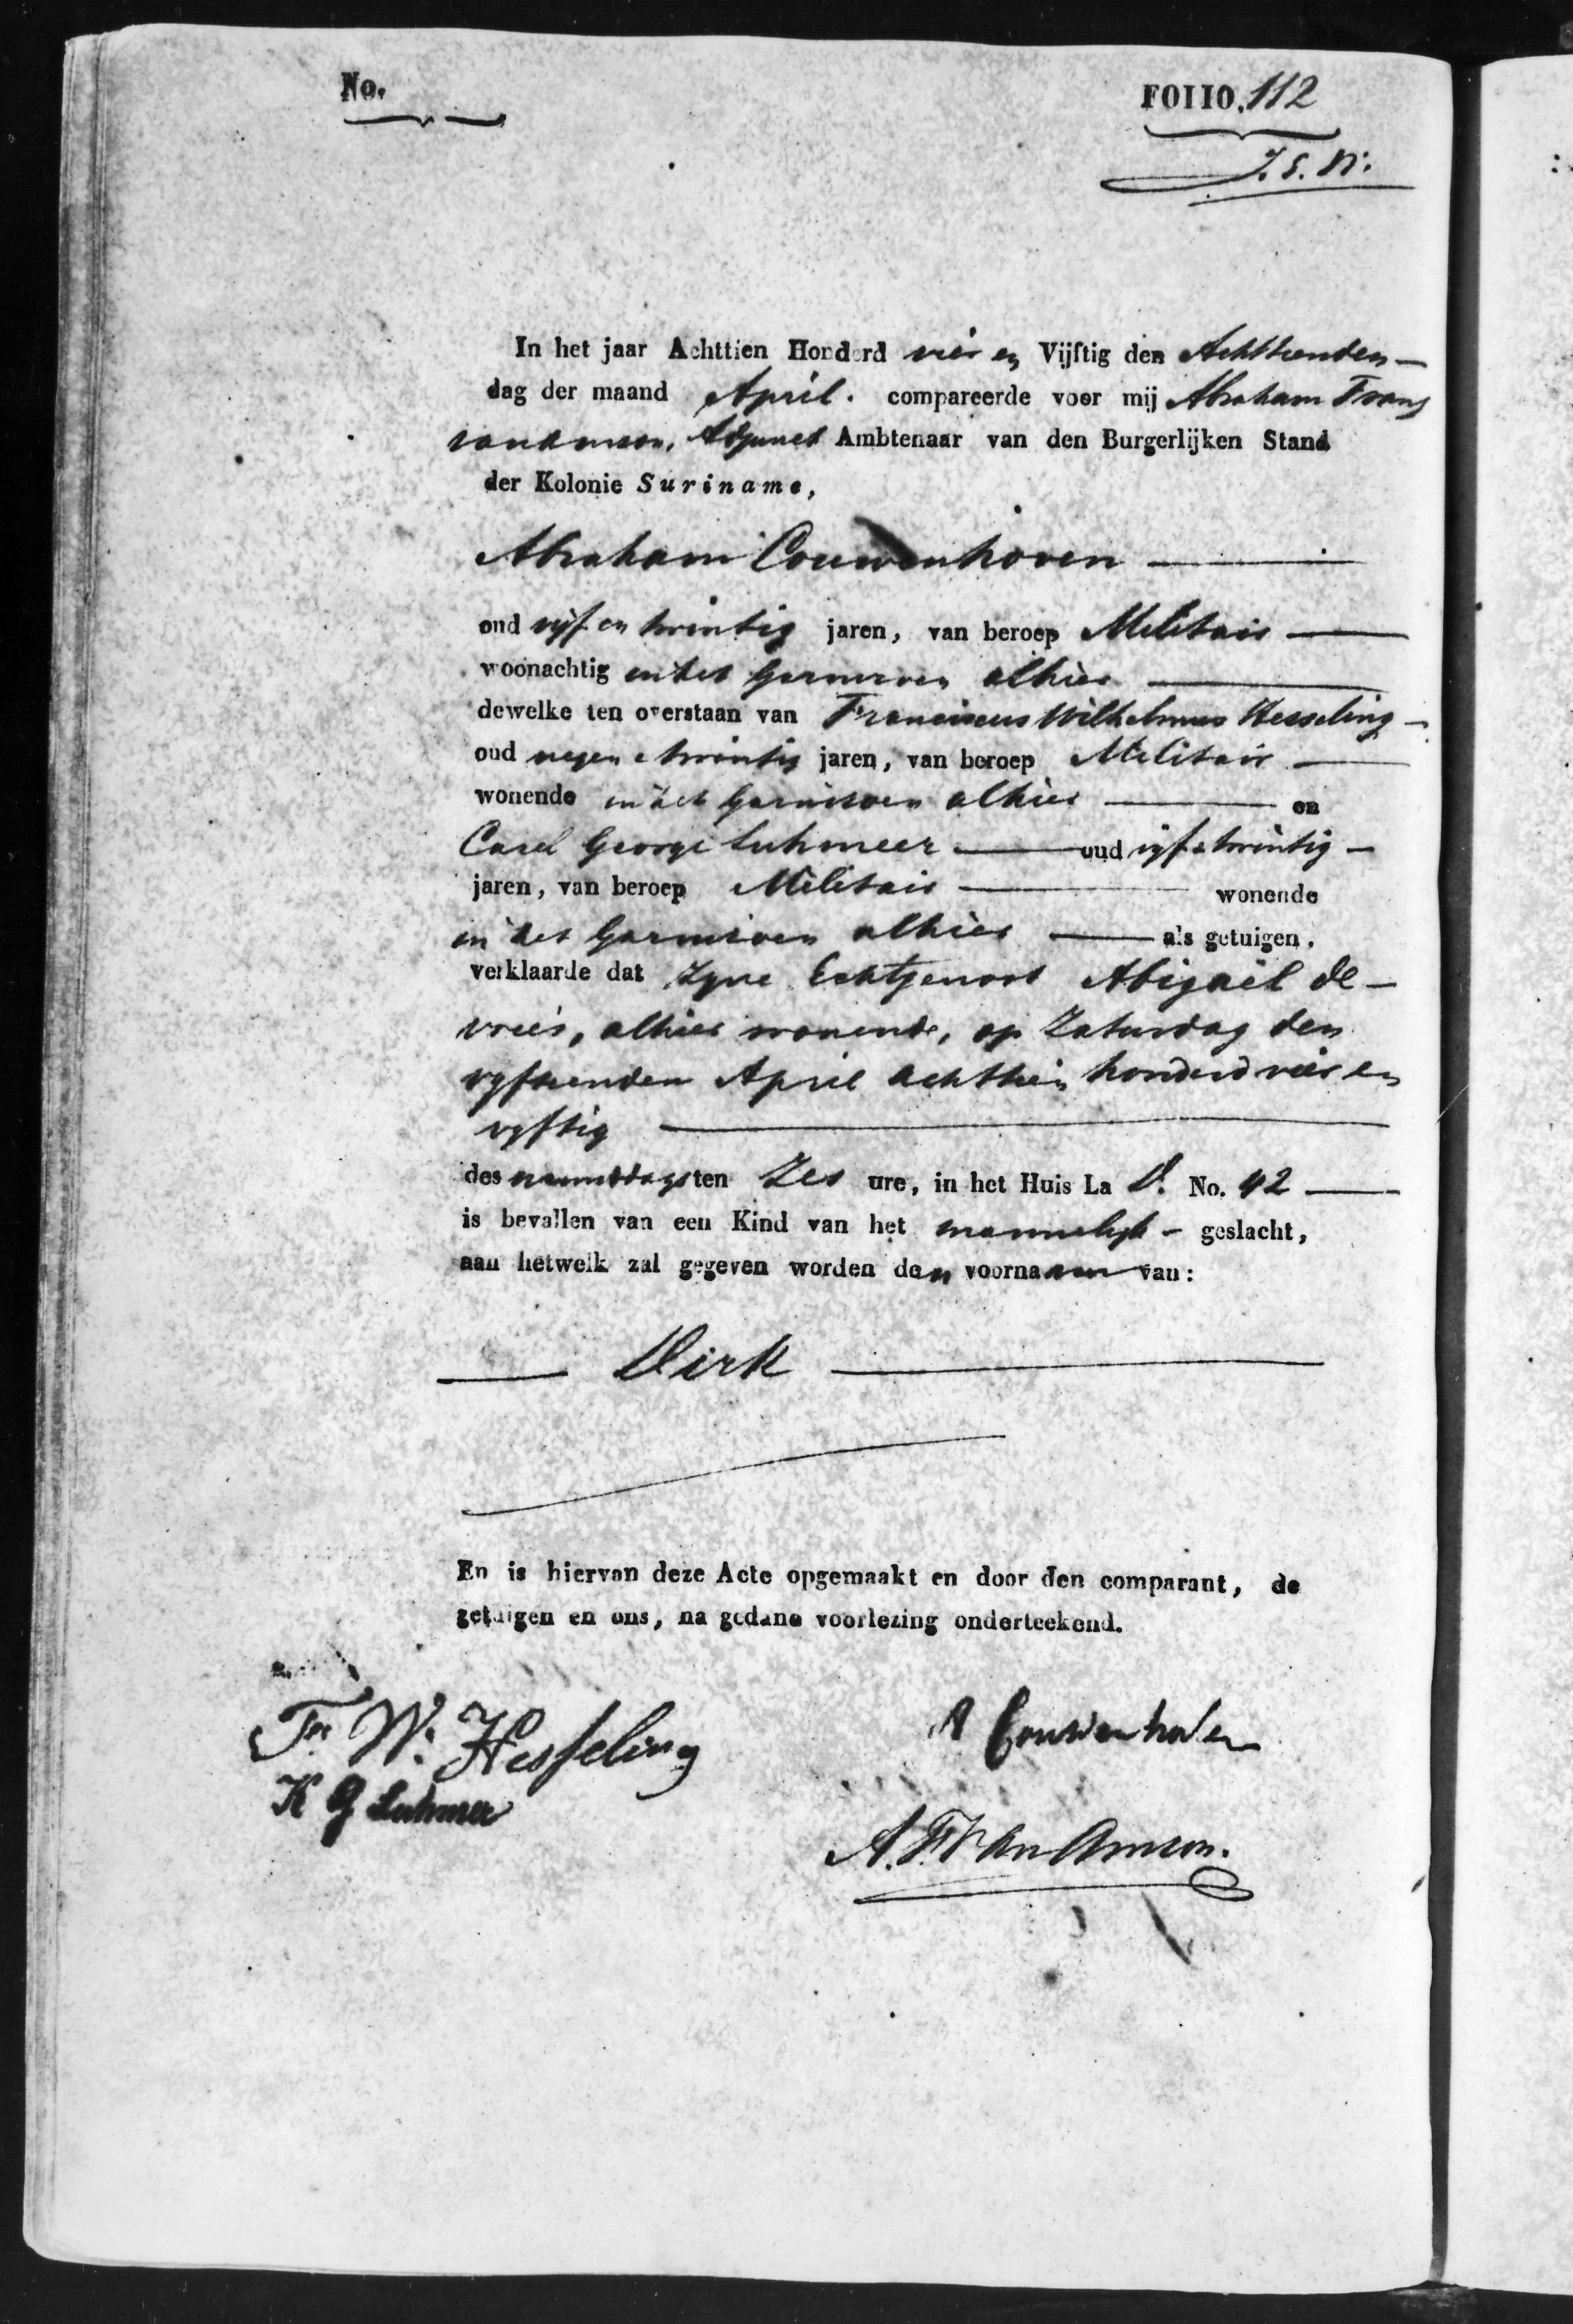 No.
FOLIO. 112
In het jaar Achttien Honderd vier en Vijftig den Achttienden
dag der maand April. compareerde voor mij Abraham Frans
van Amson, Adjunct Ambtenaar van den Burgerlijken Stand
der Kolonie Suriname,
Abraham Couwenhoven
oud vyf en twintig jaren, van beroep Militair
woonachtig in het Garnisoen alhier
dewelke ten overstaan van Franciscus Wilhelmus Hesseling
oud negen & twintig jaren, van beroep Militair
wonende in het Garnisoen alhier en
Carel George Luhmeer oud vyf & twintig
jaren, van beroep Militair wonende
in het Garnisoen alhier als getuigen,
verklaarde dat zyne Echtgenoot Abigaël de
vries, alhier wonende, op Zaturdag den
vyftienden April Achttien honderd vier en
vyftig
des namiddags ten Zes ure, in het Huis La D. No. 42
is bevallen van een Kind van het mannelyk geslacht,
aan hetwelk zal gegeven worden den voornaam van:
Dirk
En is hiervan deze Acte opgemaakt en door den comparant, de
getuigen en ons, na gedane voorlezing onderteekend.
Fr W. Hesseling
A Couwenhoven
K G Luhmer
A. F. Van Amson.